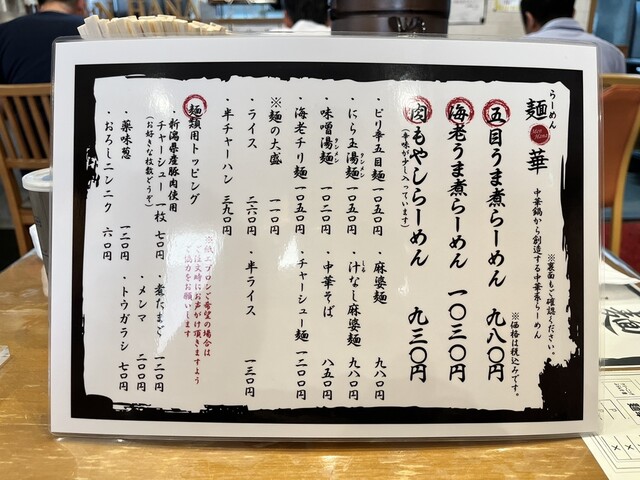 らーめん
麺華
Men Hana
中華鍋から創造する中華系らーめん
※裏面もご確認ください。
※価格は税込みです。
五目うま煮らーめん 九八〇円
海老うま煮らーめん 一〇三〇円
肉もやしらーめん 九三〇円
(辛味が少し入っています)
・ピリ辛五目麺 一〇五〇円
・にら玉湯麺 一〇五〇円
タンメン
・味噌湯麺 一〇二〇円
タンメン
・海老チリ麺 一〇五〇円
・麻婆麺 九八〇円
・汁なし麻婆麺 九八〇円
しる
・中華そば 八五〇円
・チャーシュー麺 一二〇〇円
※麺の大盛 一一〇円
・ライス 二六〇円
・半ライス 一三〇円
・半チャーハン 三九〇円
麺類用トッピング
※紙エプロンご希望の場合は
ご注文時にお声がけ頂きますよう
ご協力をお願いします
・新潟県産豚肉使用
チャーシュー 一枚 七〇円
(お好きな枚数どうぞ)
・薬味葱 一二〇円
・おろしニンニク 六〇円
・煮たまご 一二〇円
・メンマ 二〇〇円
・トウガラシ 七〇円